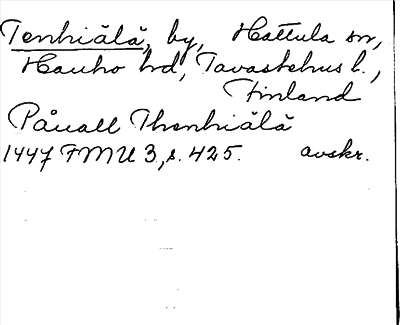 Tenhiälä, by, Hattula sn,
Hauho hd, Tavastehus l.,
Finland
Påuall Thenhiälä
1447 FMU 3, s. 425. avskr.